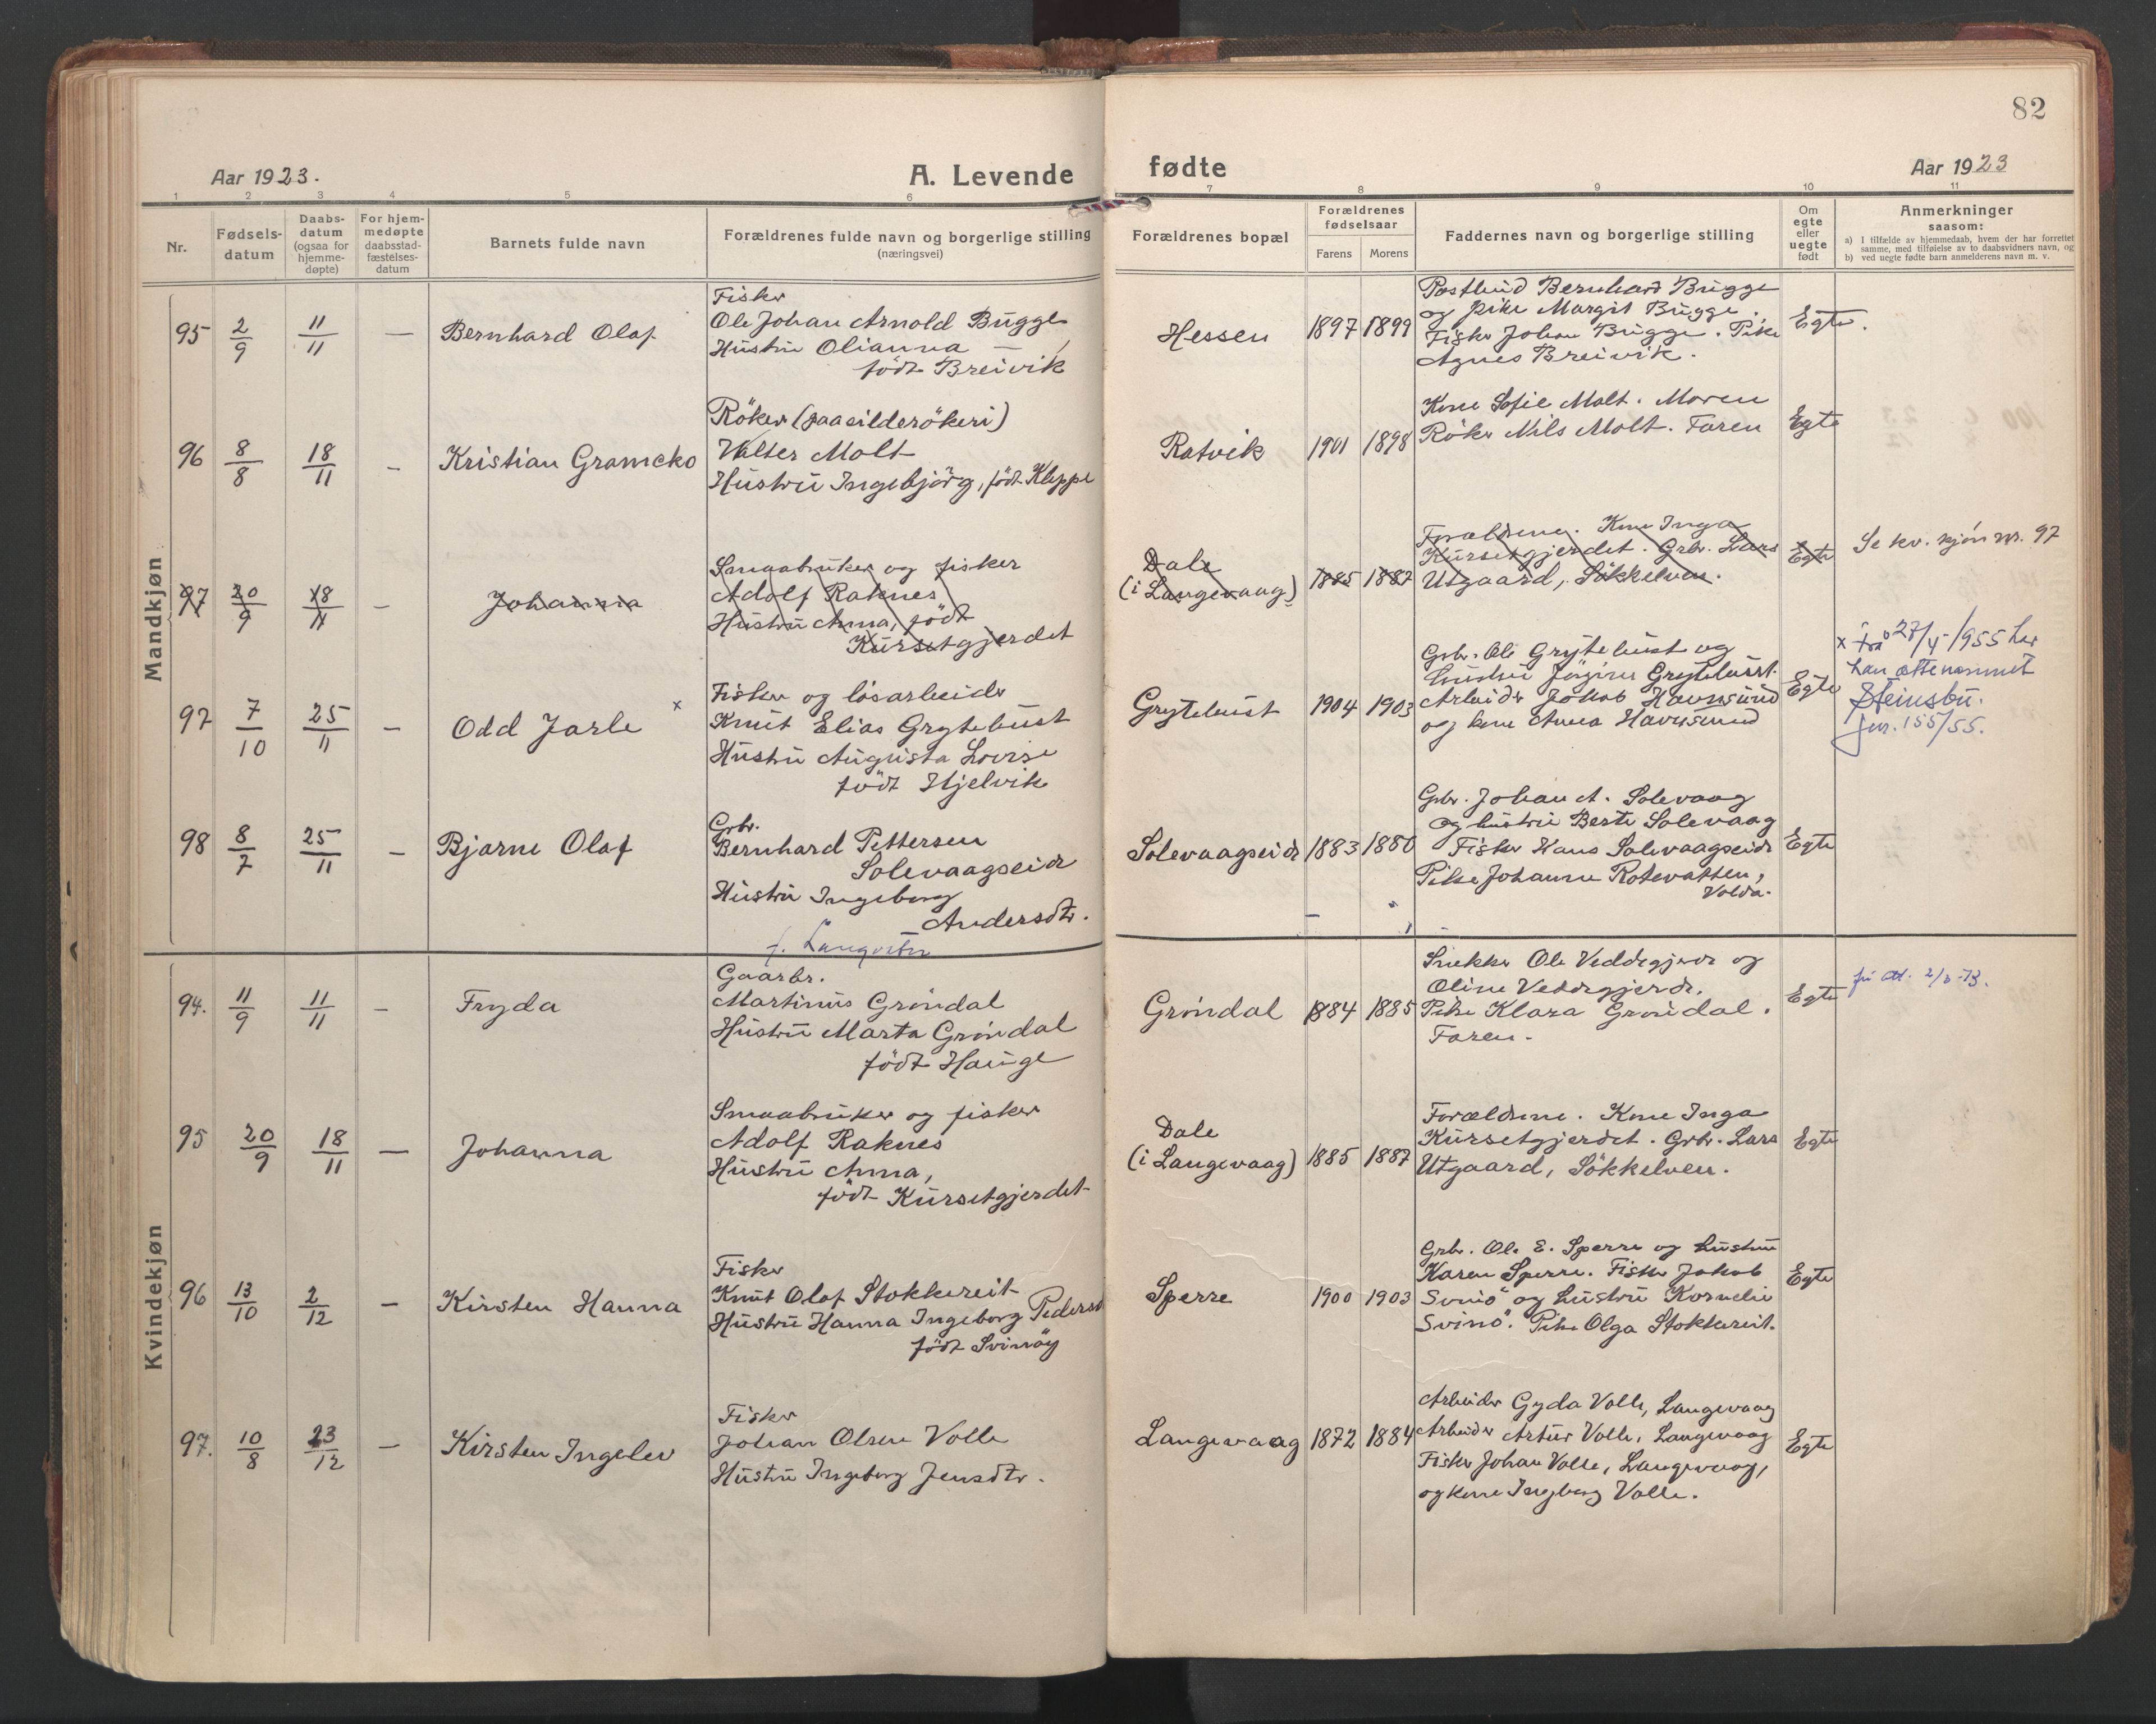 82
Aar 1923.
A. Levende
fødte
Aar 1923
1 2 3 4 5 6 7 8 9 10 11
Nr.
Fødsels-
datum
Daabs-
datum
(ogsaa for
hjemme-
døpte)
For hjem-
medøpte
daabsstad-
fæstelses-
datum
Barnets fulde navn
Forældrenes fulde navn og borgerlige stilling
(næringsvei)
Forældrenes bopæl
Forældrenes
fødselsaar
Farens
Morens
Faddernes navn og borgerlige stilling
Om
egte
eller
uegte
født
Anmerkninger
saasom:
a) I tilfælde av hjemmedaab, hvem der har forrettet
samme, med tilføielse av to daabsvidners navn, og
b) ved uegte fødte barn anmelderens navn m. v.
Mandkjøn
95 2/9 11/11 — Bernhard Olaf
Fisker
Ole Johan Arnold Bugge
Hustru Olianna —
født Breivik
Hessen 1897 1899
Postbud Bernhard Bugge
og pike Margit Bugge.
Fisker Johan Bugge. Pike
Agnes Breivik.
Egte.
96 8/8 18/11 — Kristian Gramcko
Röker (paa silderökeri)
Valter Molt
Hustru Ingebjörg, född Kleppe
Ratvik 1901 1898
Kone Sofie Molt. Moren
Röker Nils Molt. Faren
Egte
97 20/9 18/11 — Johanna
Smaabruker og fisker
Adolf Raknes
Hustru Anna, född
Kursetgjerdet
Dale
(i Langevaag)
1885 1887
Forældrene. Kone Inga
Kursetgjerdet. Grbr. Lars
Utgaard, Sökkelven.
Egte
Se kv. kjön nr. 97
97 7/10 25/11 — Odd Jarle x
Fisker og lösarbeider
Knut Elias Grytebust
Hustru Augusta Lovise
född Hjelvik
Grytebust 1904 1903
Grbr. Ole Grytebust og
hustru Grytebust.
Arbeider Jakob Havnsund
og kone Anna Havnsund
Egte
x Frå 27/4-1955 har
han ættenamnet
Steinsbu.
jnr. 155/55.
98 8/7 25/11 — Bjarne Olaf
Grbr.
Bernhard Pettersen
Solevaagseide
Hustru Ingeborg
Andersdtr.
f.
Solevaagseide 1883 1880
Grbr. Johan A. Solevaag
og hustru Berte Solevaag
Fisker Hans Solevaagseide
Pike Johanne Rotevatten,
Volda.
Egte
Kvindekjøn
94. 11/9 11/11 — Fryda
Gaarbr.
Martinus Gröndal
Hustru Marta Gröndal
född Hauge
Gröndal 1884 1885
Snekker Ole Veddegjerde og
Oline Veddegjerde.
Pike Klara Gröndal.
Faren.
Egte
2/3-73.
95 20/9 18/11 — Johanna
Smaabruker og fisker
Adolf Raknes
Hustru Anna,
född Kursetgjerdet
Dale
(i Langevaag)
1885 1887
Forældrene. Kone Inga
Kursetgjerdet. Grbr. Lars
Utgaard, Sökkelven.
Egte
96 13/10 2/12 — Kirsten Hanna
Fisker
Knut Olaf Stokkereit
Hustru Hanna Ingeborg Pedersd
född Svinöy
Sperre 1900 1903
Grbr. Ole E. Sperre og hustru
Karen Sperre. Fisker Jakob
Svinö og hustru Kornelie
Svinö. Pike Olga Stokkereit.
Egte
97. 10/8 23/12 — Kirsten Ingelev
Fisker
Johan Olsen Volle
Hustru Ingeborg Jensdtr.
Langevaag 1872 1884
Arbeider Gyda Volle, Langevaag
Arbeider Artur Volle, Langevaag
Fisker Johan Volle, Langevaag,
og kone Ingeborg Volle.
Egte